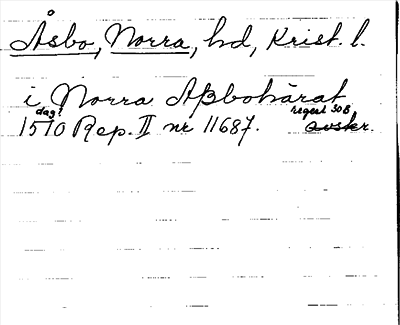 Åsbo, Norra, hd, Krist. l.
i Norra Aßbohärat
dag? regest 30B
1510 Rep. II nr 11687. avskr.